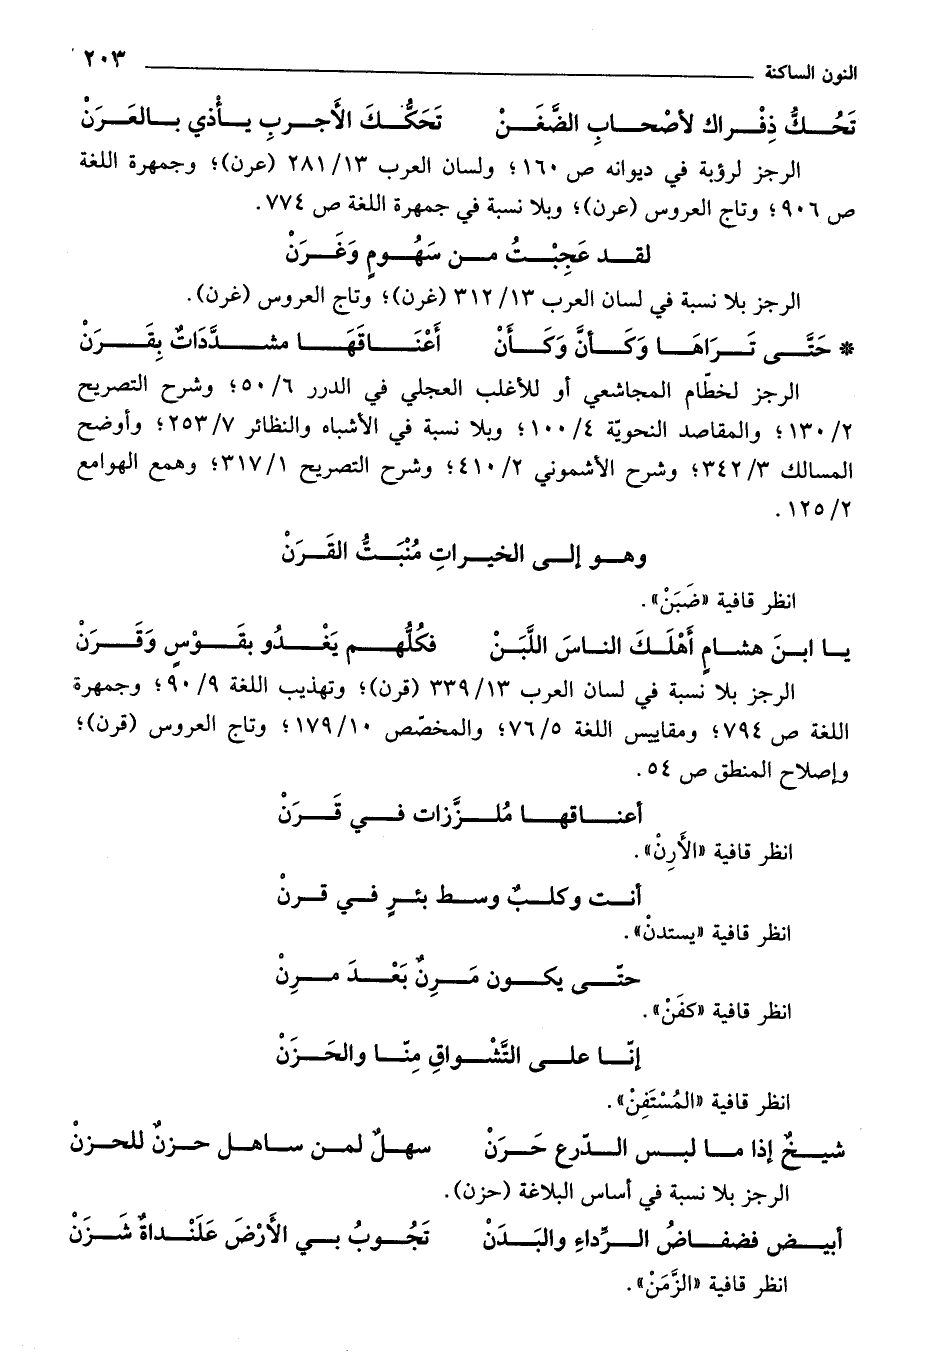 النون الساكنة ٢٠٣
تَحُكُّ ذِفْراك لأصْحابِ الضَّغَنْ تَحَكُّكَ الأَجربِ يأْذي بالعَرَنْ
الرجز لرؤبة في ديوانه ص ١٦٠؛ ولسان العرب ١٣/ ٢٨١ (عرن)؛ وجمهرة اللغة
ص ٩٠٦؛ وتاج العروس (عرن)؛ وبلا نسبة في جمهرة اللغة ص ٧٧٤.
لقد عَجِبْتُ من سَهُومٍ وَغَرَنْ
الرجز بلا نسبة في لسان العرب ١٣/ ٣١٢ (غرن)؛ وتاج العروس (غرن).
* حَتَّى تَرَاهَا وَكَأنَّ وَكَأَنْ أَعْنَاقَهَا مشدَّدَاتٌ بِقَرَنْ
الرجز لخطّام المجاشعي أو للأغلب العجلي في الدرر ٦/ ٥٠؛ وشرح التصريح
٢/ ١٣٠؛ والمقاصد النحويّة ٤/ ١٠٠؛ وبلا نسبة في الأشباه والنظائر ٧/ ٢٥٣؛ وأوضح
المسالك ٣/ ٣٤٢؛ وشرح الأشموني ٢/ ٤١٠؛ وشرح التصريح ١/ ٣١٧؛ وهمع الهوامع
٢/ ١٢٥.
وهو إلى الخيراتِ مُنْبَتُّ القَرَنْ
انظر قافية «ضَبَنْ».
يا ابنَ هشامٍ أَهْلَكَ الناسَ اللَّبَنْ فكُلُّهم يَغْدُو بقَوْسٍ وَقَرَنْ
الرجز بلا نسبة في لسان العرب ١٣/ ٣٣٩ (قرن)؛ وتهذيب اللغة ٩/ ٩٠؛ وجمهرة
اللغة ص ٧٩٤؛ ومقاييس اللغة ٥/ ٧٦؛ والمخصّص ١٠/ ١٧٩؛ وتاج العروس (قرن)؛
وإصلاح المنطق ص ٥٤.
أعناقها مُلزَّزات في قَرَنْ
انظر قافية «الأَرِنْ».
أنت وكلبٌ وسط بئرٍ في قرنْ
انظر قافية «يستدنْ».
حتّى يكون مَرِنٌ بَعْدَ مرِنْ
انظر قافية «كفَنْ».
إنّا على التَّشْواقِ مِنّا والحَزَنْ
انظر قافية «المُسْتَفِنْ».
شيخٌ إذا ما لبس الدّرع حَرَنْ سهلٌ لمن ساهل حزنٌ للحزنْ
الرجز بلا نسبة في أساس البلاغة (حزن).
أبيض فضفاضُ الرِّداءِ والبَدَنْ تَجُوبُ بي الأَرْضَ عَلَنْداةٌ شَزَنْ
انظر قافية «الزَّمَنْ».